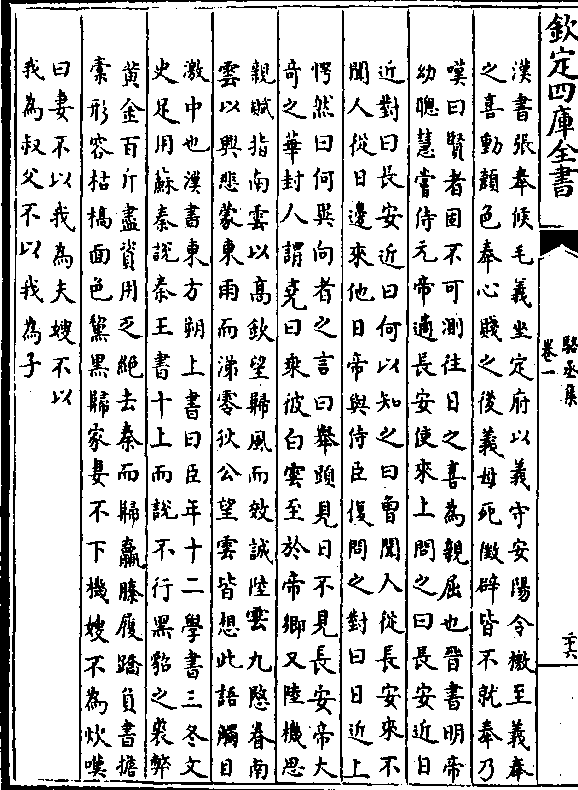 欽定四庫全書
駱丞集
卷一
二十六
漢書張奉候毛義坐定府以義守安陽令檄至義奉
之喜動顔色奉心賤之後義母死徵辟皆不就奉乃
嘆曰賢者固不可測往日之喜為親屈也晉書明帝
幼聰慧嘗侍元帝適長安使來上問之曰長安近日
近對曰長安近曰何以知之曰曾聞人從長安來不
聞人從日邊來他日帝與侍臣復問之對曰日近上
愕然曰何與向者之言曰舉頭見日不見長安帝大
奇之華封人謂堯曰乘彼白雲至於帝鄉又陸機思
親賦指南雲以高欽望歸風而效誠陸雲九愍眷南
雲以興悲蒙東雨而涕零狄公望雲皆想此語觸目
激中也漢書東方朔上書曰臣年十二學書三冬文
史足用蘇秦說秦王書十上而說不行黑貂之裘弊
黄金百斤盡資用乏絶去秦而歸羸縢履蹻負書擔
橐形容枯槁面色黧黑歸家妻不下機嫂不為炊嘆
曰妻不以我為夫嫂不以
我為叔父不以我為子